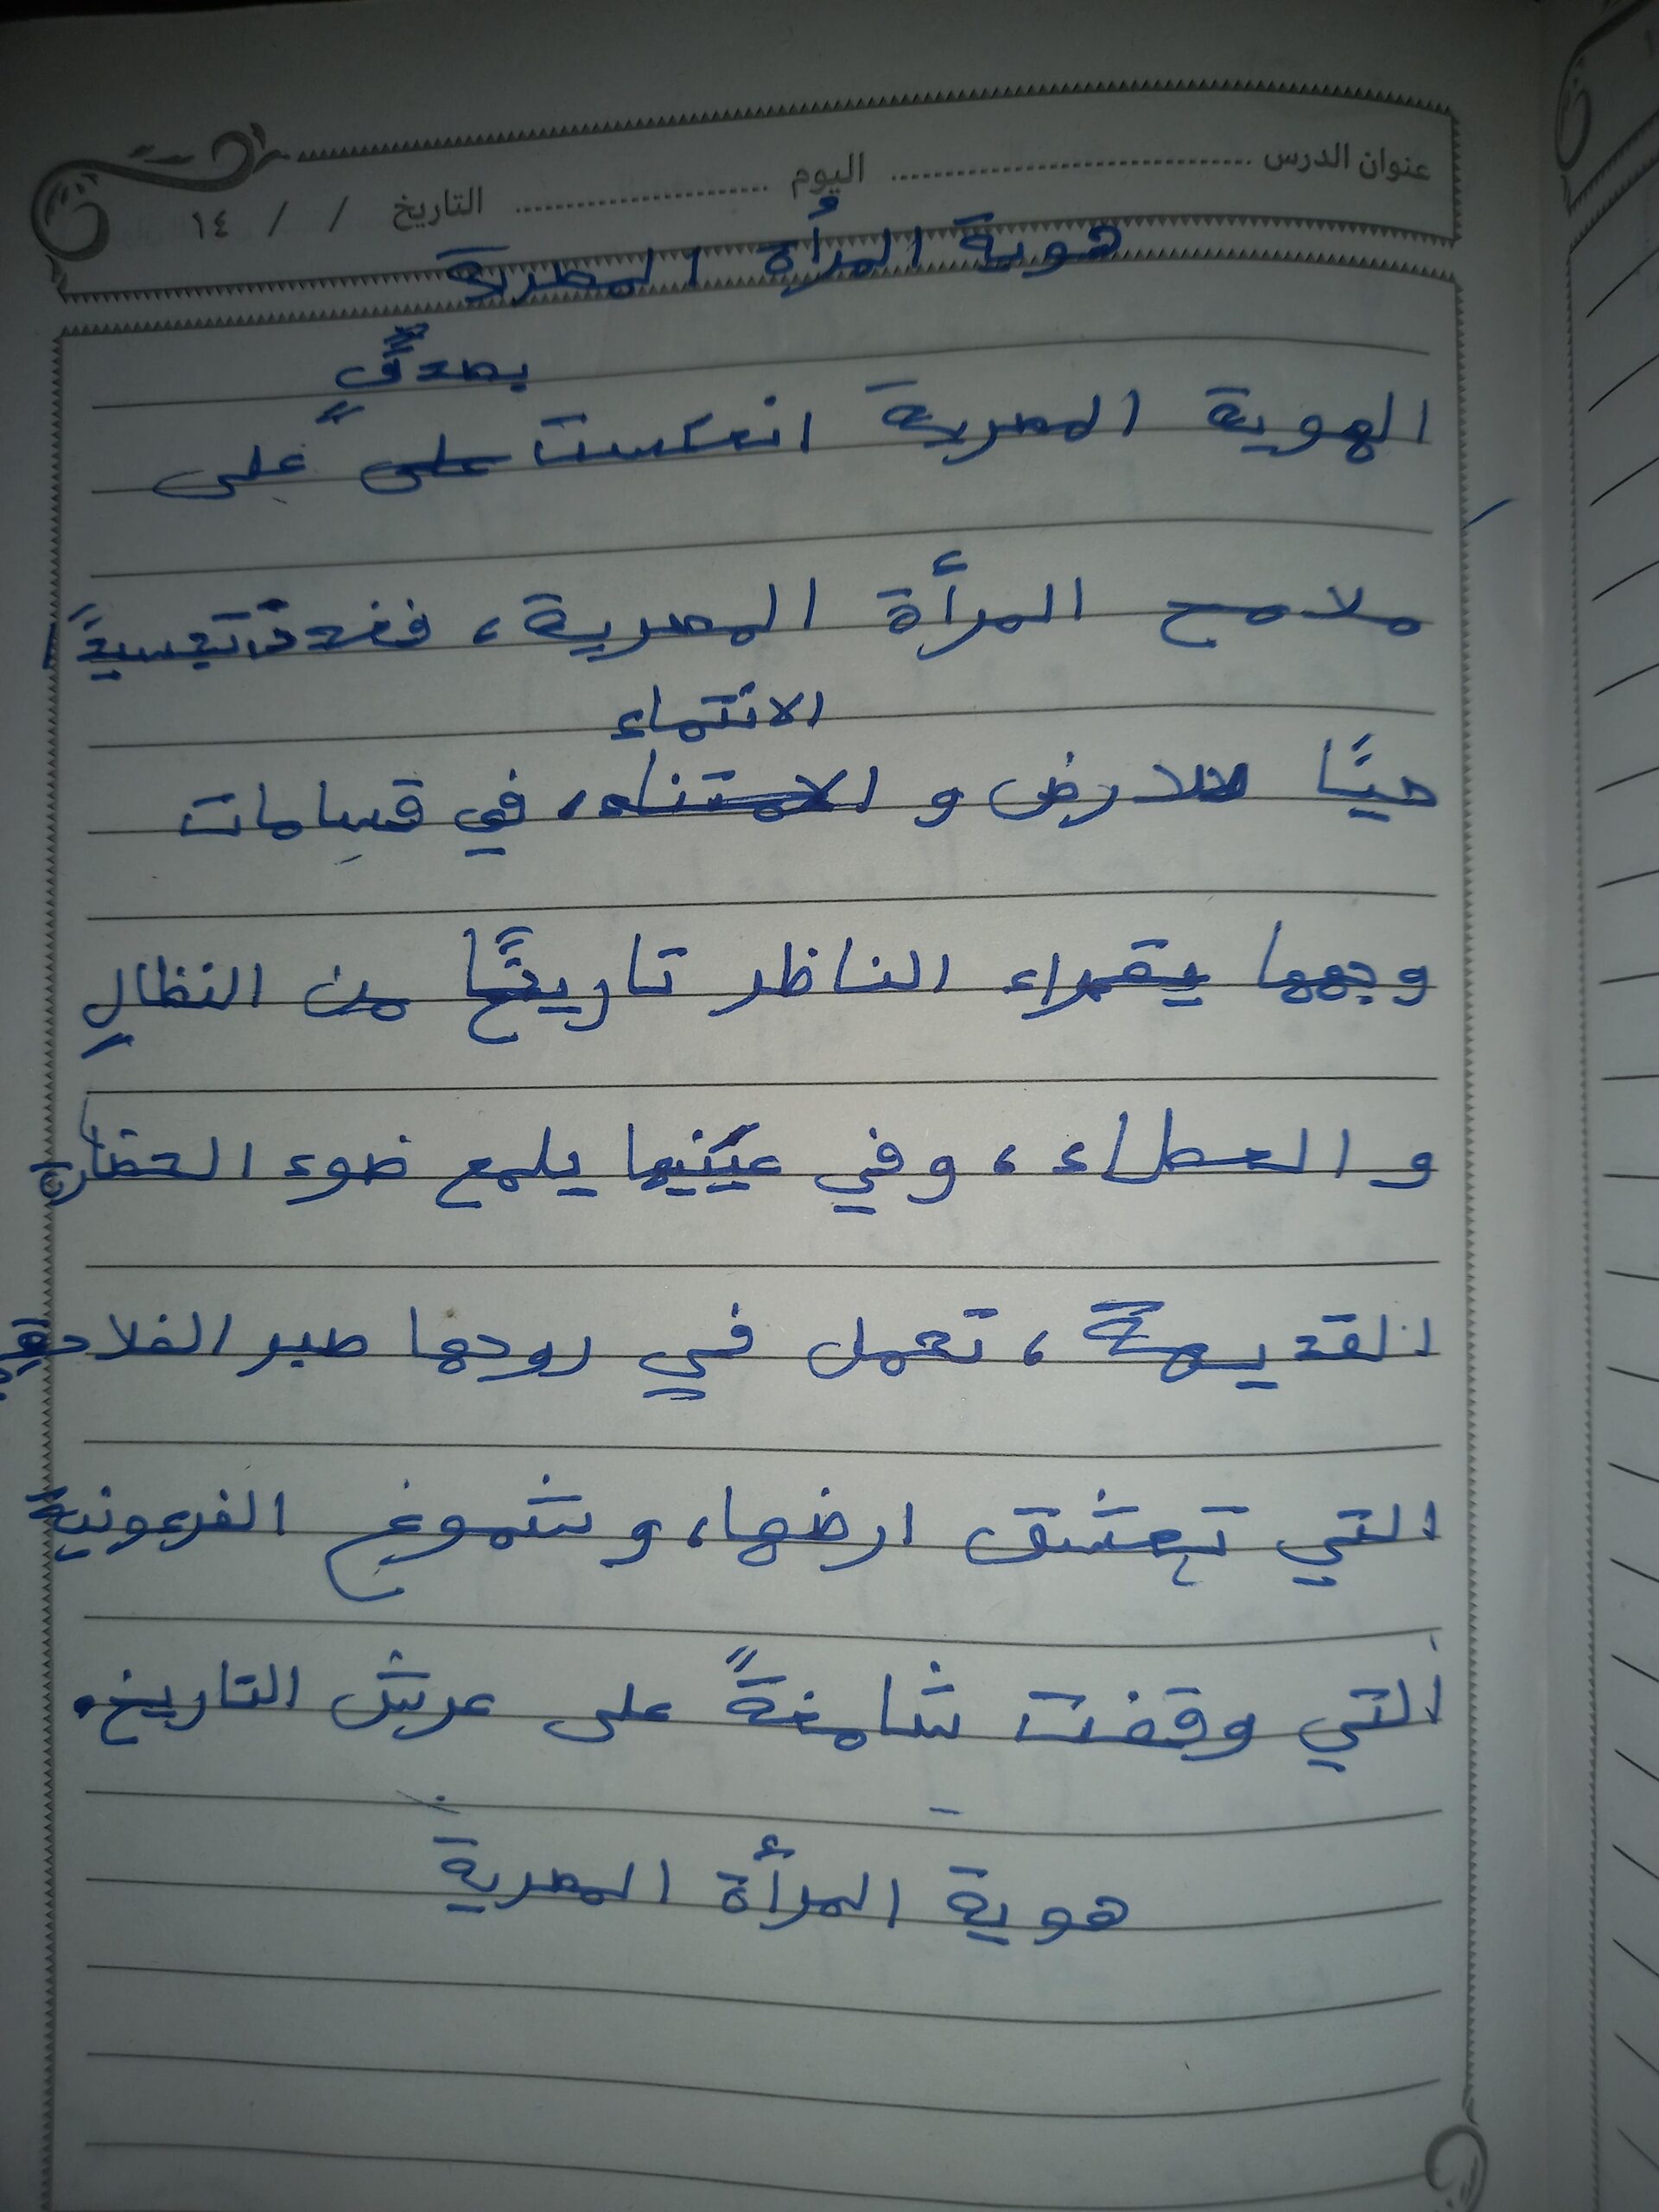 عنوان الدرس ........................ اليوم ................ التاريخ / / ١٤
هوية المرأة المصرية
بصدقٍ
الهوية المصرية انعكست على على
ملامح المرأة المصرية، فغدت تجسيدًا
الانتماء
حيًّا للارض و الامتناء، في قسِامات
وجهها يقراء الناظر تاريخًا من النظالِ
و العطاء، وفي عينيها يلمع ضوء الحضارة
القديمة، تحمل في روحها صبر الفلاحة
التي تعشق ارضها، و شموغ الفرعونية
التي وقفت شامخةً على عرش التاريخ.
هوية المرأة المصرية